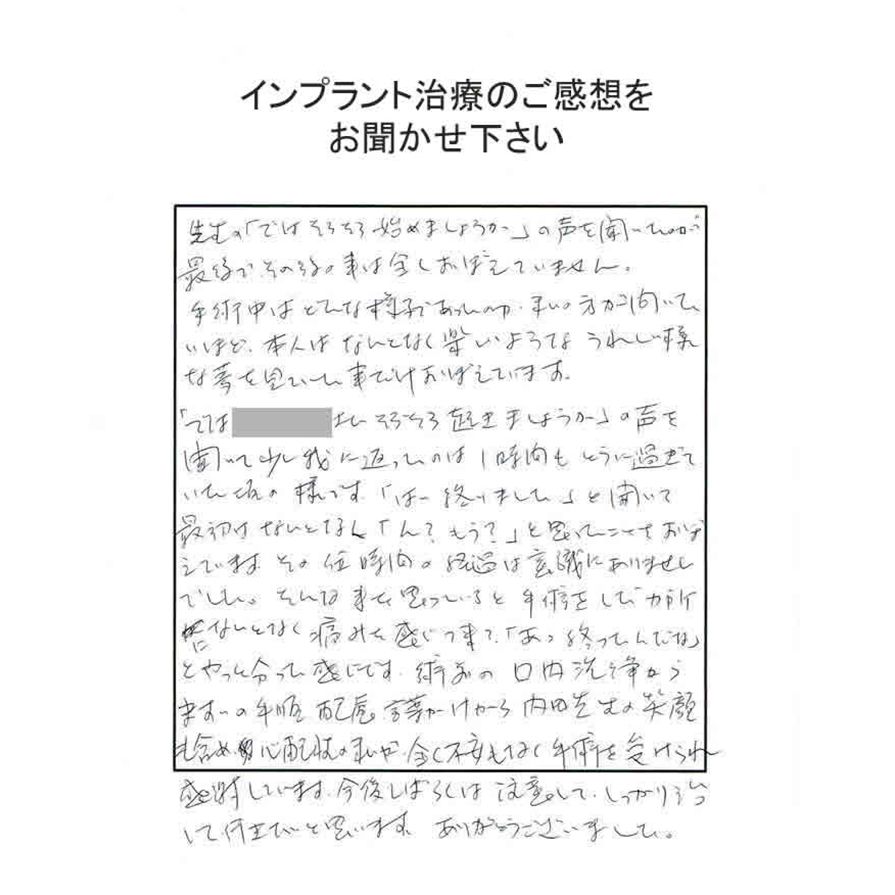 インプラント治療のご感想を
お聞かせ下さい
先生の「ではそろそろ始めましょうか」の声を聞いたのが
最後でその後の事は全くおぼえていません。
手術中はどんな様子であったのか、私の方が聞いてた
いほど、本人はなんとなく楽しいようなうれしい様
な夢を見ていた事だけおぼえています。
「では さんそろそろ起きましょうか」の声を
聞いて少し我に返ったのは1時間もとうに過ぎて
いた頃の様です。「はー終りました」と聞いて
最初はなんとなく「ん？もう？」と思ったことをおぼ
えています。その位時間の経過は意識にありません
でした。そんな事を思っていると手術をした カ所
になんとなく痛みを感じて来て、「あっ終ったんだな」
とやっと分った感じです。術前の口内洗浄から
ますいの手順、配慮、言葉かけから内田先生の笑顔
も含め 心配性の私が、全く不安もなく手術を受けられ
感謝しています。今後しばらくは注意して、しっかり治
して行きたいと思います。ありがとうございました。